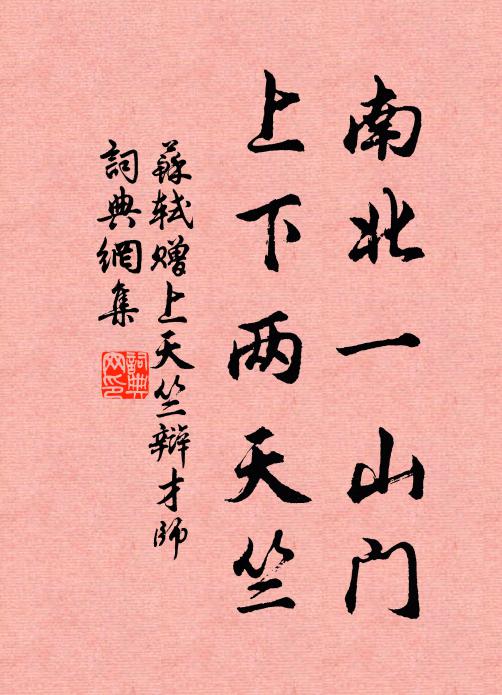 南北一山门
上下两天竺
蘇轼赠上天竺辯才师
詞典網集
詞典网印